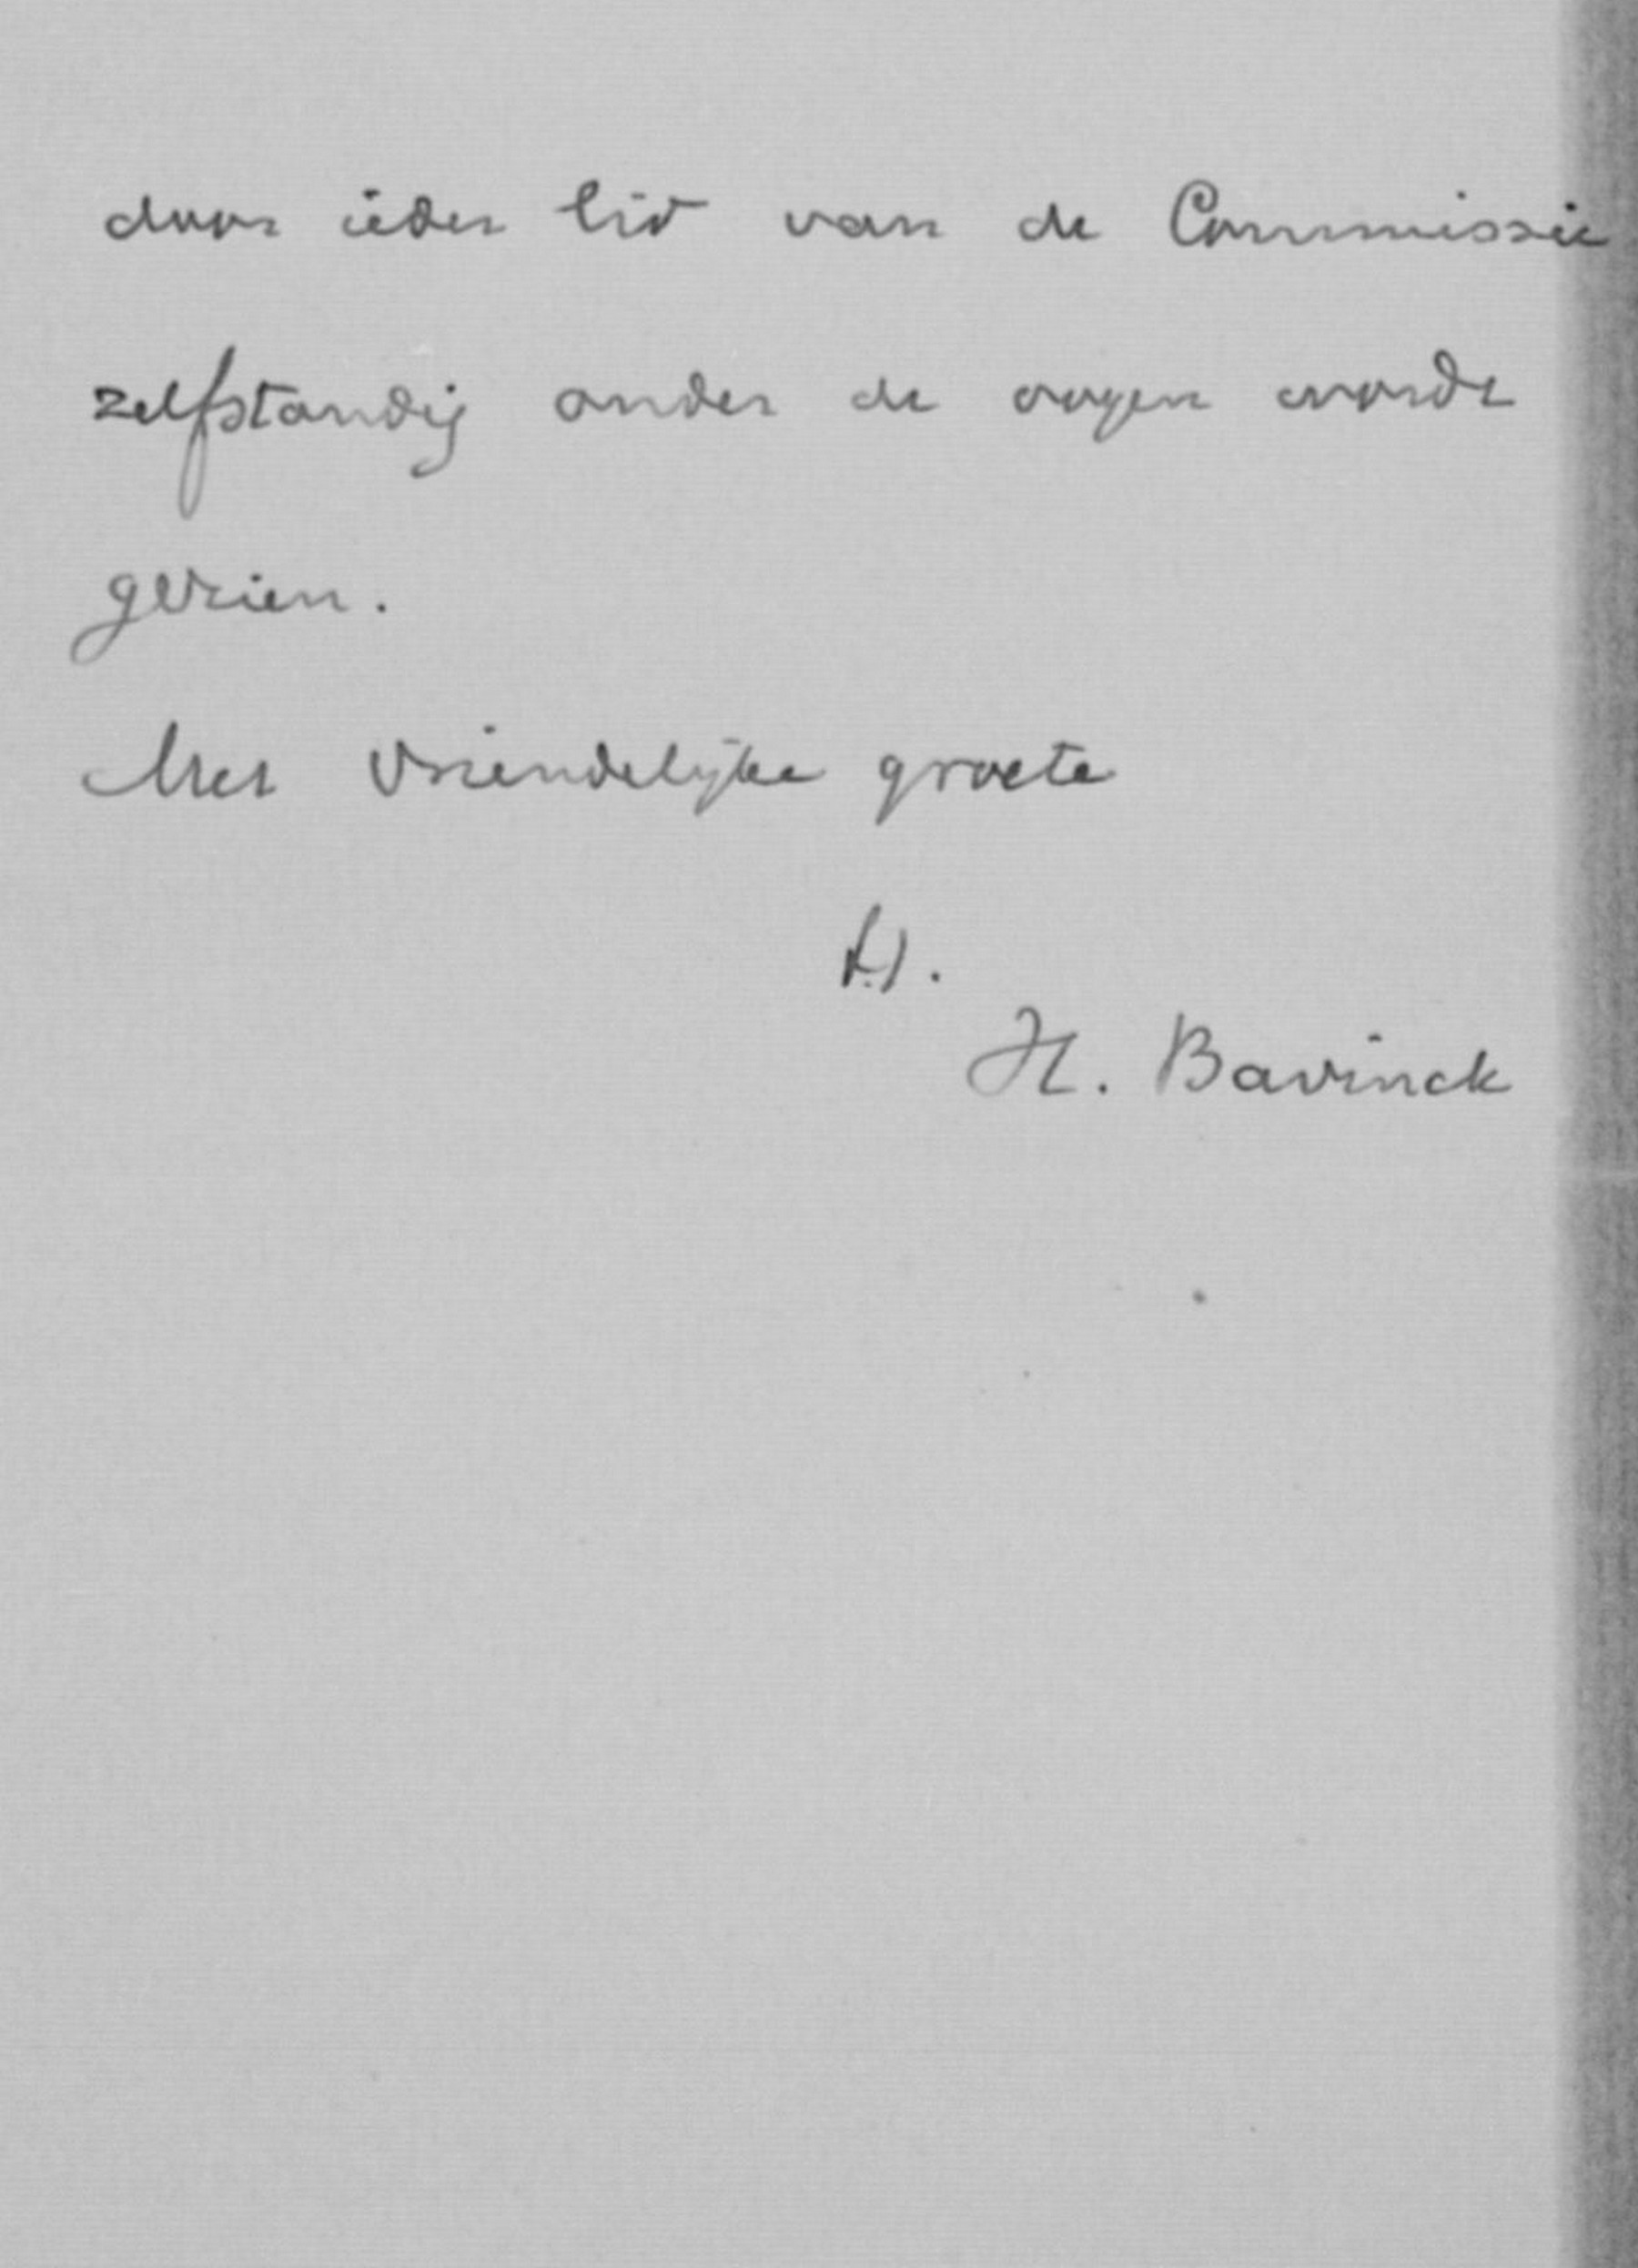 door ieder lid van de Commissie
zelfstandig onder de oogen worde
gezien.
Met vriendelijke groete
H. Bavinck